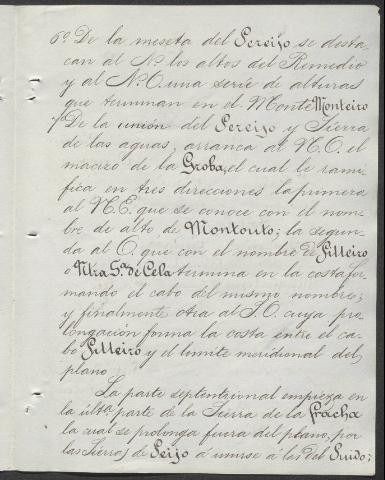 6º De la meseta del Pereijo se desta-
can al N. los altos del Remedio
y al N.O. una serie de alturas
que terminan en el Monte Monteiro
7º De la union del Pereijo y Sierra
de las aguas, arranca al N.O. el
macizo de la Groba, el cual se rami-
fica en tres direcciones la primera
al N.E. que se conoce con el nom-
bre de alto de Montouto; la segun-
da al O. que con el nombre de Silleiro
o Ntra Sª de Cela termina en la costa for-
mando el cabo del mismo nombre;
y finalmente otra al S.O. cuya pro-
longación forma la costa entre el ca-
bo Silleiro y el limite meridional del
plano.
La parte septentrional empieza en
la últª parte de la Sierra de la
la cual se prolonga fuera del plano, por
las Sierras de Seijo a unirse á las del Suido;